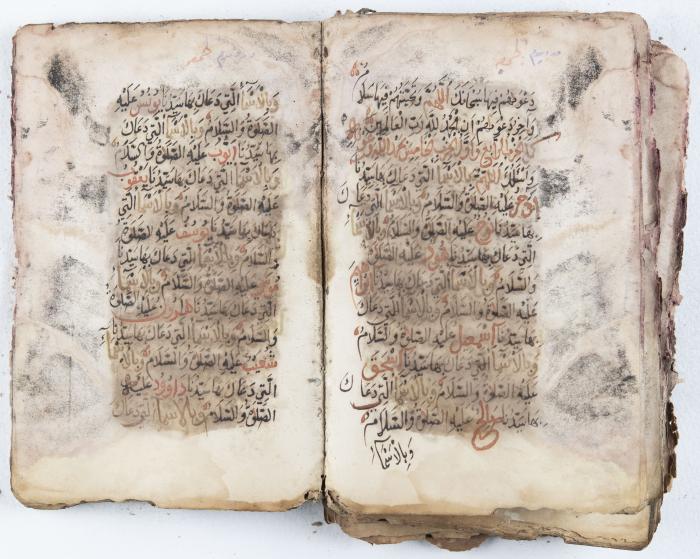 دعويهم فيها سبحانك اللهم وتحيتهم فيها سلام
واخر دعويهم ان الحمد لله رب العالمين
اللهم بالاسماء التي دعاك بها سيدنا
عليه الصلوة والسلام وبالاسماء التي دعاك
بها سيدنا نوح عليه الصلوة والسلام وبالاسماء
التي دعاك بها سيدنا هود عليه الصلوة
والسلام وبالاسماء التي دعاك بها سيدنا
عليه الصلوة والسلام وبالاسماء التي دعاك
بها سيدنا اسمعيل عليه الصلوة والسلام
وبالاسماء التي دعاك بها سيدنا اسحق
عليه الصلوة والسلام وبالاسماء التي دعاك
بها سيدنا صالح عليه الصلوة والسلام
وبالاسماء
وبالاسماء التي دعاك بها سيدنا يونس عليه
الصلوة والسلام وبالاسماء التي دعاك
بها سيدنا ايوب عليه الصلوة والسلام
وبالاسماء التي دعاك بها سيدنا يعقوب
عليه الصلوة والسلام وبالاسماء التي
دعاك بها سيدنا يوسف عليه الصلوة
والسلام وبالاسماء التي دعاك بها سيدنا
عليه الصلوة والسلام وبالاسماء
التي دعاك بها سيدنا هارون عليه الصلوة
والسلام وبالاسماء التي دعاك بها سيدنا
شعيب عليه الصلوة والسلام وبالاسماء
التي دعاك بها سيدنا داوود عليه
الصلوة والسلام وبالاسماء التي دعاك